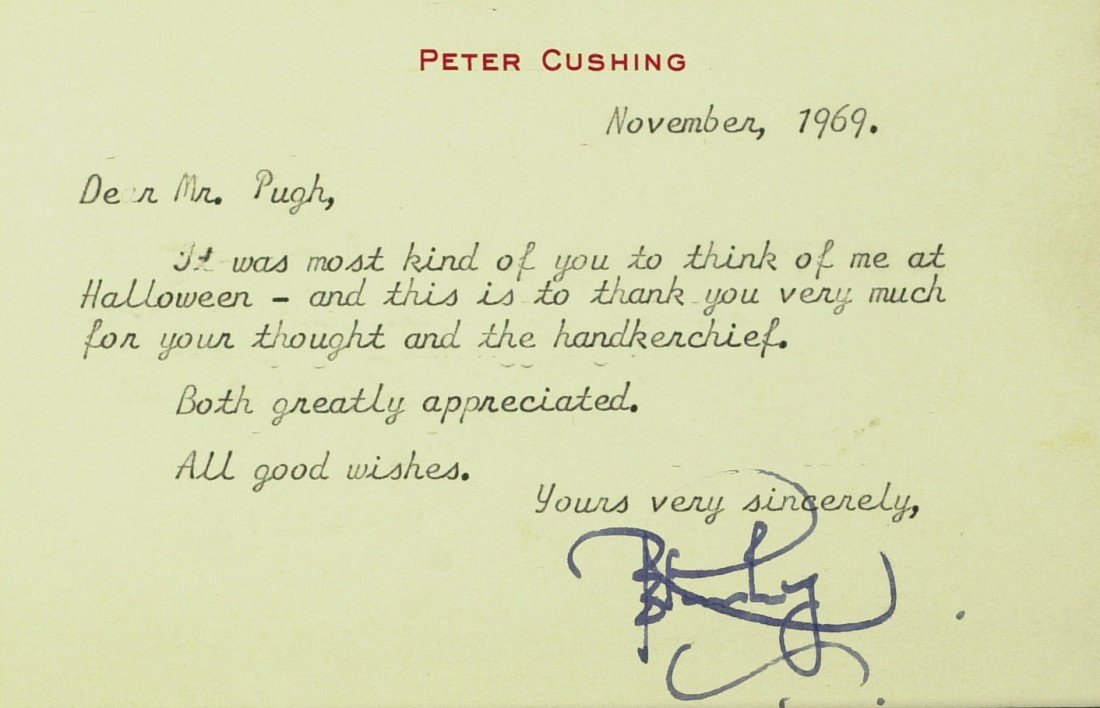 PETER CUSHING
November, 1969.
Dear Mr. Pugh,
It was most kind of you to think of me at
Halloween - and this is to thank you very much
for your thought and the handkerchief.
Both greatly appreciated.
All good wishes.
Yours very sincerely,